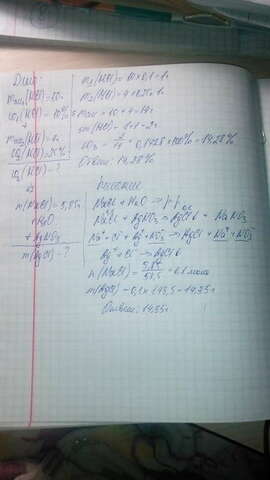 Дано:
m р-ра1(KCl) = 10г
ω1(KCl) = 10%
+
ω2(KCl) = 25%
ω3(KCl) - ?
m1(KCl) = 10 × 0,1 = 1г
m2(KCl) = 4 × 0,25 = 1г
m = 10 + 4 = 14г
m(KCl) = 1 + 1 = 2г
ω3 = = 0,1428 × 100% = 14,28%
Ответ: 14,28%
m(NaCl) = 5,85г
H2O
+ AgNO3
m(AgCl) - ?
Решение
NaCl + H2O → р-р
NaCl + AgNO3 → AgCl↓ + NaNO3
Na⁺ + Cl⁻ + Ag⁺ + NO3⁻ → AgCl + Na⁺ + NO3⁻
Ag⁺ + Cl⁻ → AgCl↓
n(NaCl) = = 0,1 моль
m(AgCl) = 0,1 × 143,5 = 14,35г
Ответ: 14,35г